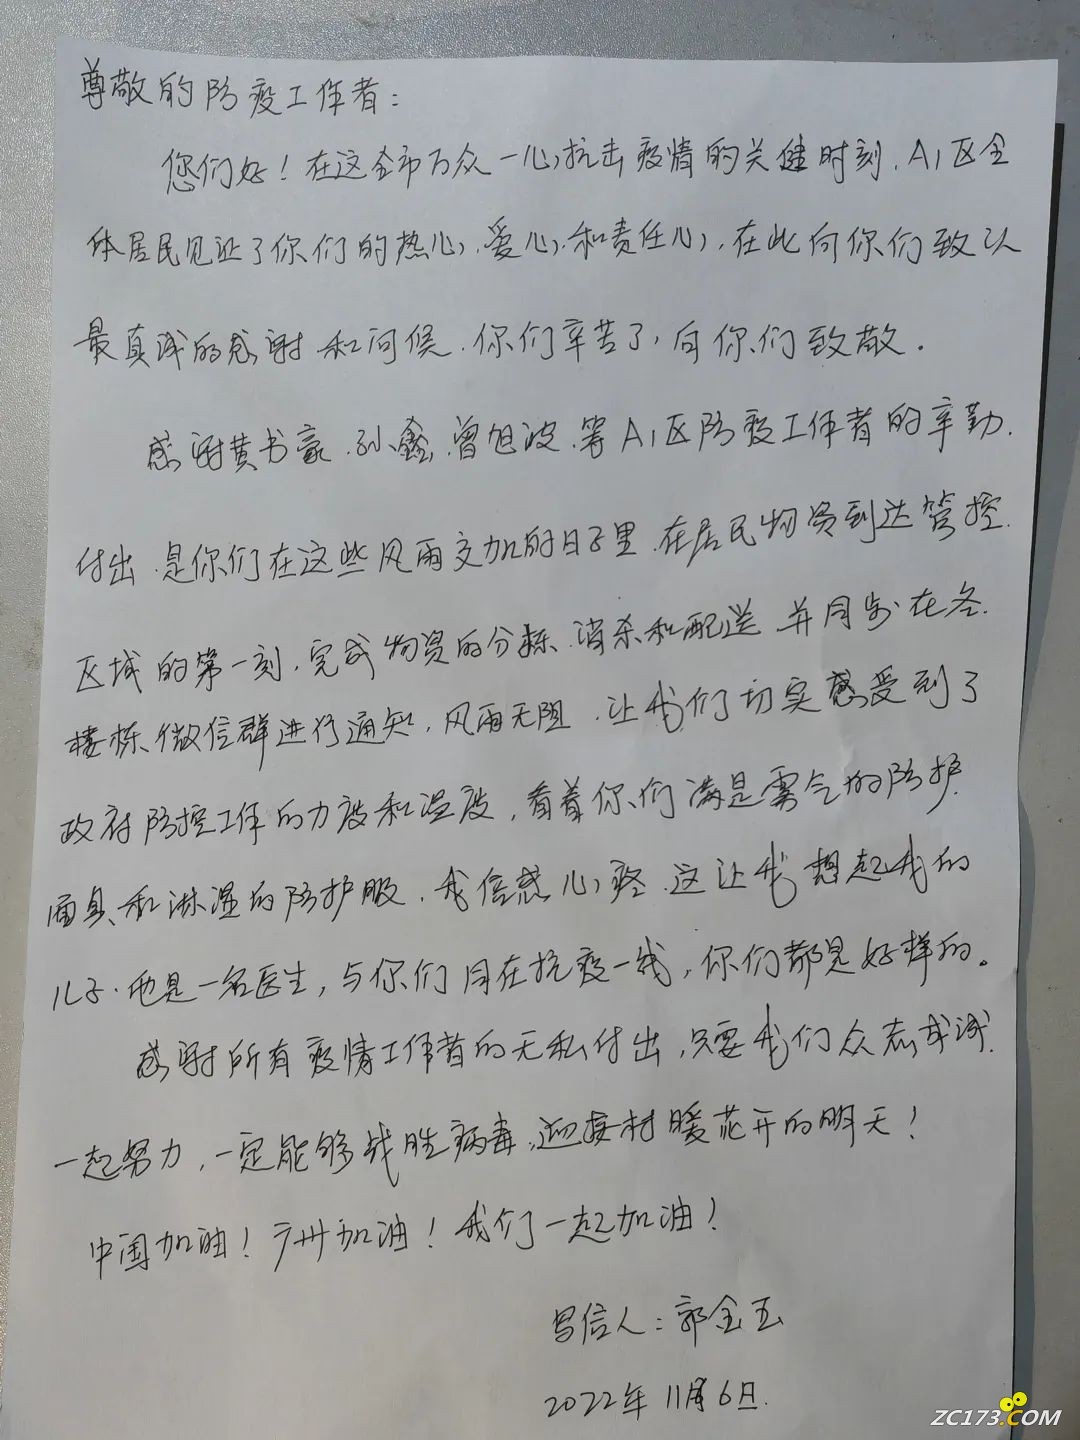 尊敬的防疫工作者：
您们好！在这全市万众一心抗击疫情的关健时刻，A1区全
体居民见证了你们的热心、爱心和责任心，在此向你们致以
最真诚的感谢和问候，你们辛苦了，向你们致敬。
感谢黄书豪、孙鑫、曾旭波、等A1区防疫工作者的辛勤
付出，是你们在这些风雨交加的日子里，在居民物资到达管控
区域的第一刻，完成物资的分拣、消杀和配送，并同步在各
楼栋微信群进行通知，风雨无阻，让我们切实感受到了
政府防控工作的力度和温度，看着你们满是雾气的防护
面具和淋湿的防护服，我倍感心疼，这让我想起我的
儿子，也是一名医生，与你们同在抗疫一线，你们都是好样的。
感谢所有疫情工作者的无私付出，只要我们众志成诚，
一起努力，一定能够战胜病毒，迎接春暖花开的明天！
中国加油！广州加油！我们一起加油！
写信人：郭金玉
2022年11月6日.
ZC173.COM